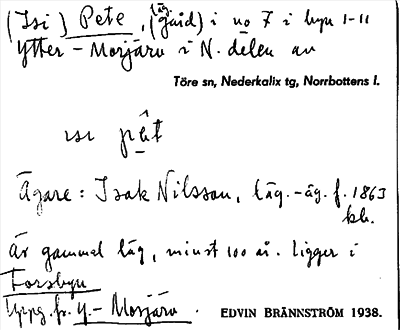 (Isi) Pete, (läg. gård) i no 7 i byn 1-11
Ytter-Morjärv i N. delen av
Töre sn, Nederkalix tg, Norrbottens l.
ɪsɪ pêt
Ägare: Isak Nilsson, läg.-äg. f. 1863
kb.
Är gammal läg, minst 100 år. Ligger i
Forsbyn
Uppg. fr. Y.-Morjärv.
EDVIN BRÄNNSTRÖM 1938.